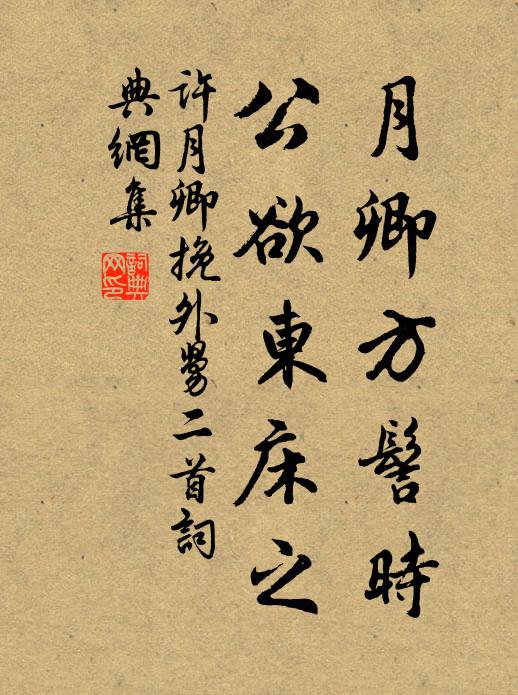 月卿方髻時
公欲東床之
許月卿挽外舅二首詞
典網集
詞典
网印